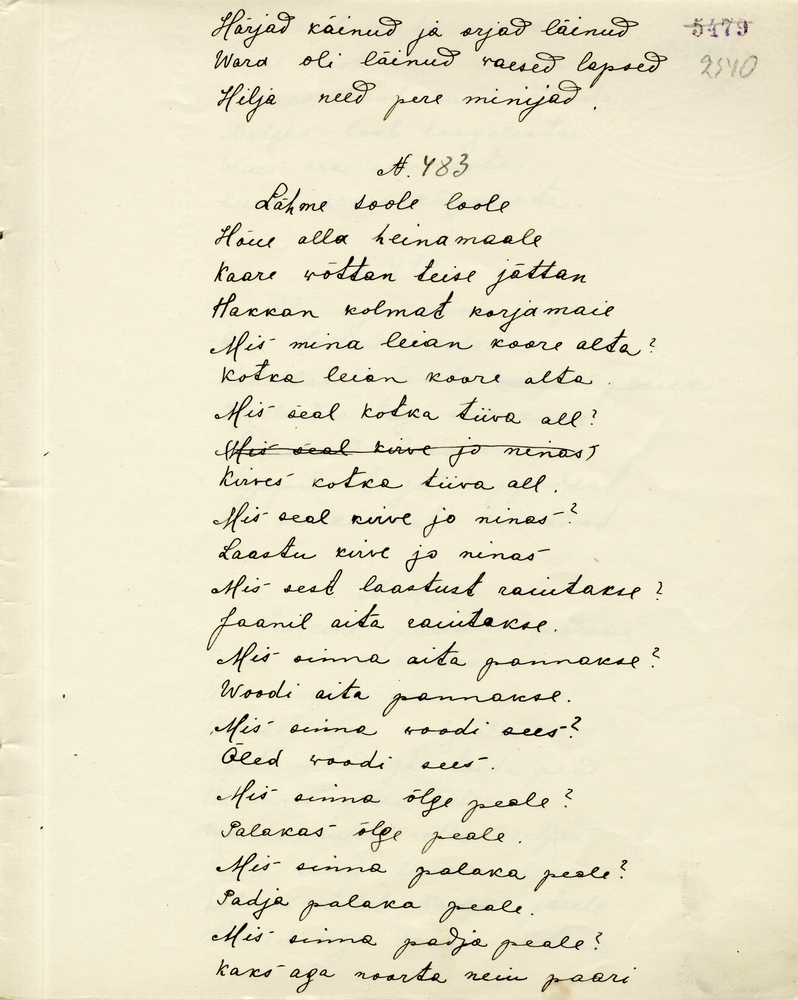 Härjad käinud ja orjad läinud
5479
Wara oli läinud waesed lapsed
2540
Hilja need pere minijad.
N. 483
Lähme soole loole
Hõue alla heinamaale
Kaare wõttan teise jättan
Hakkan kolmat korjamaie
Mis mina leian kaare alta?
Kotka leian kaare alta.
Mis seal kotka tiiva all?
Mis seal kirve ja ninas?
Kirves kotka tiiva all.
Mis seal kirve ja ninas?
Laastu kirve ja ninas
Mis sest laastust raiutakse?
Jaanil aita raiutakse.
Mis sinna aita pannakse?
Woodi aita pannakse.
Mis sinna woodi sees?
Õled woodi sees.
Mis sinna õlge peale?
Palakas õlge peale.
Mis sinna palaka peale?
Padja palaka peale.
Mis sinna padja peale?
Kaks aga noorta neiu paari